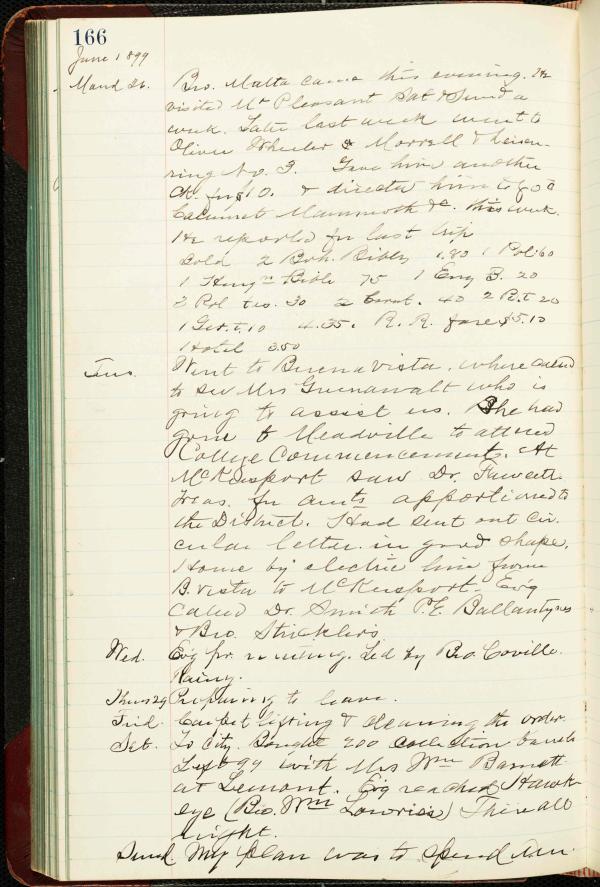 166
June 1899
Mond 26. Bro. Matta came this evening. He
visited Mt Pleasant Sat & Sund a
week. Later last week went to
Oliver Wheeler & Morrell & Leisen-
ring No. 3. Gave him another
Ck. for $10. & directed him to go to
Calumet Mammoth &c. this week.
He reported for last trip
Sold 2 Boh. Bibles 1.80 1 Pol. 60
1 Hung'n Bible 75 1 Eng B. 20
3 Pol tes. 30 2 40 2 P.t. 20
1 Ger. t. 10 4.35. R. R. fare $5.10
1 Hotel 3.50
Tues. Went to Buena Vista, where called
to see Mrs Greenawalt who is
going to assist us. She had
gone to Meadville to attend
College Commencement. At
McKeesport saw Dr. Fawcett
Treas. for amts apportioned to
the District. Had sent out cir-
cular letter in good shape.
Home by electric line from
B. Vista to McKeesport. Ev'g
called Dr. Smith P.E. Ballantynes
& Bro. Strickler's
Wed. Ev'g pr. meeting. Led by Bro. Coville.
Rainy.
Thurs 29 Preparing to leave.
Frid. Carpet lifting & cleaning the order.
Sat. To City. Bought 200 collection
Left 99 with Mrs Wm Barnett
at Lemont. Ev'g reached Hawk-
eye (Bro. Wm Lowrie's) There all
night.
Sund. My plan was to spend